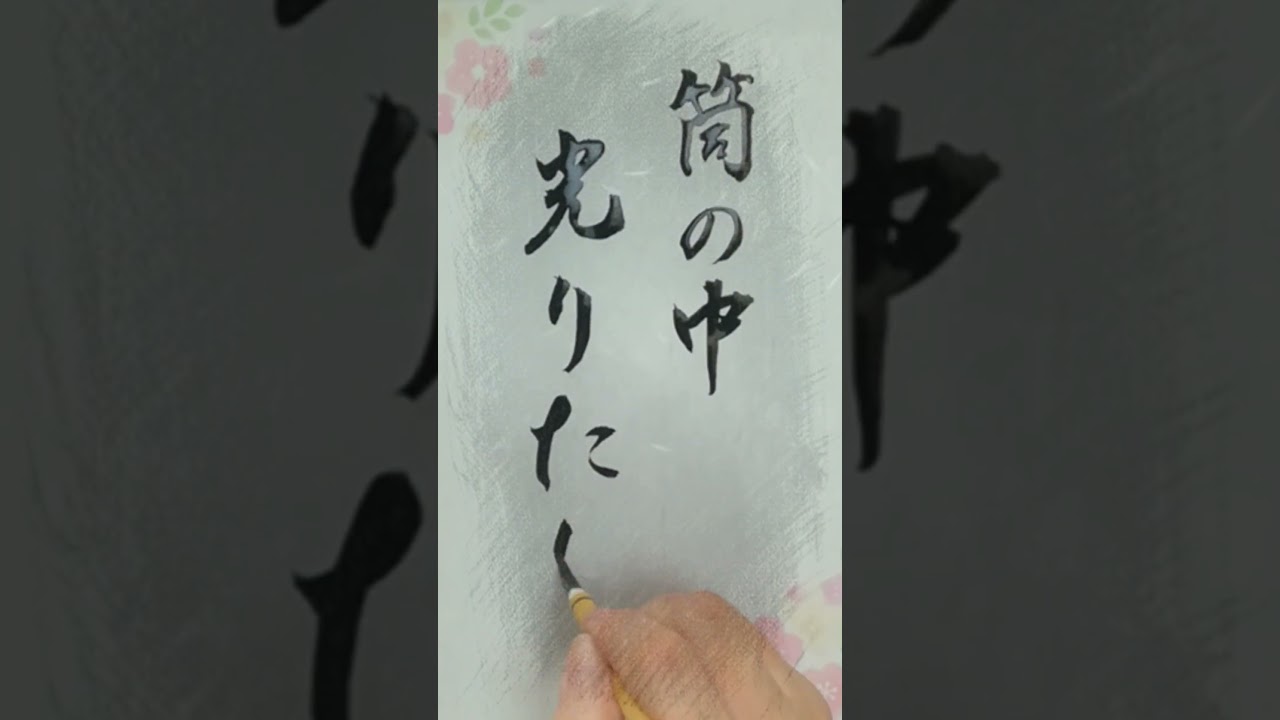 筒の中
光りたし